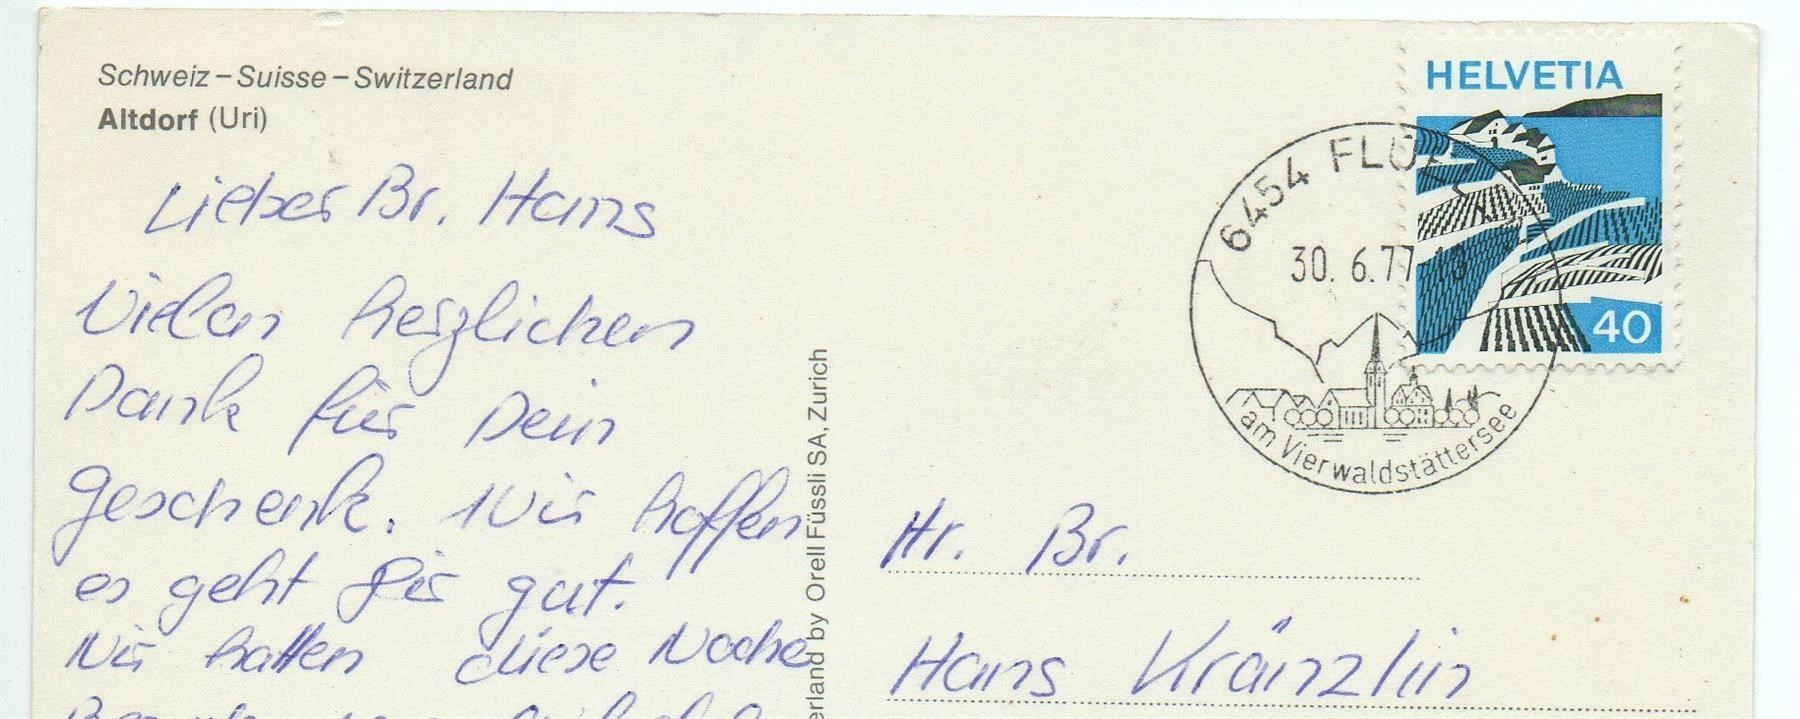 Schweiz – Suisse – Switzerland
Altdorf (Uri)
Lieber Br. Hans
Vielen herzlichen
Dank für Dein
Geschenk. Wir hoffen
es geht Dir gut.
Wir hatten diese Woche
erland by Orell Füssli SA, Zurich
HELVETIA
40
6454 FLÜ
30. 6.77-13
am Vierwaldstättersee
Hr. Br.
Hans Kränzlin